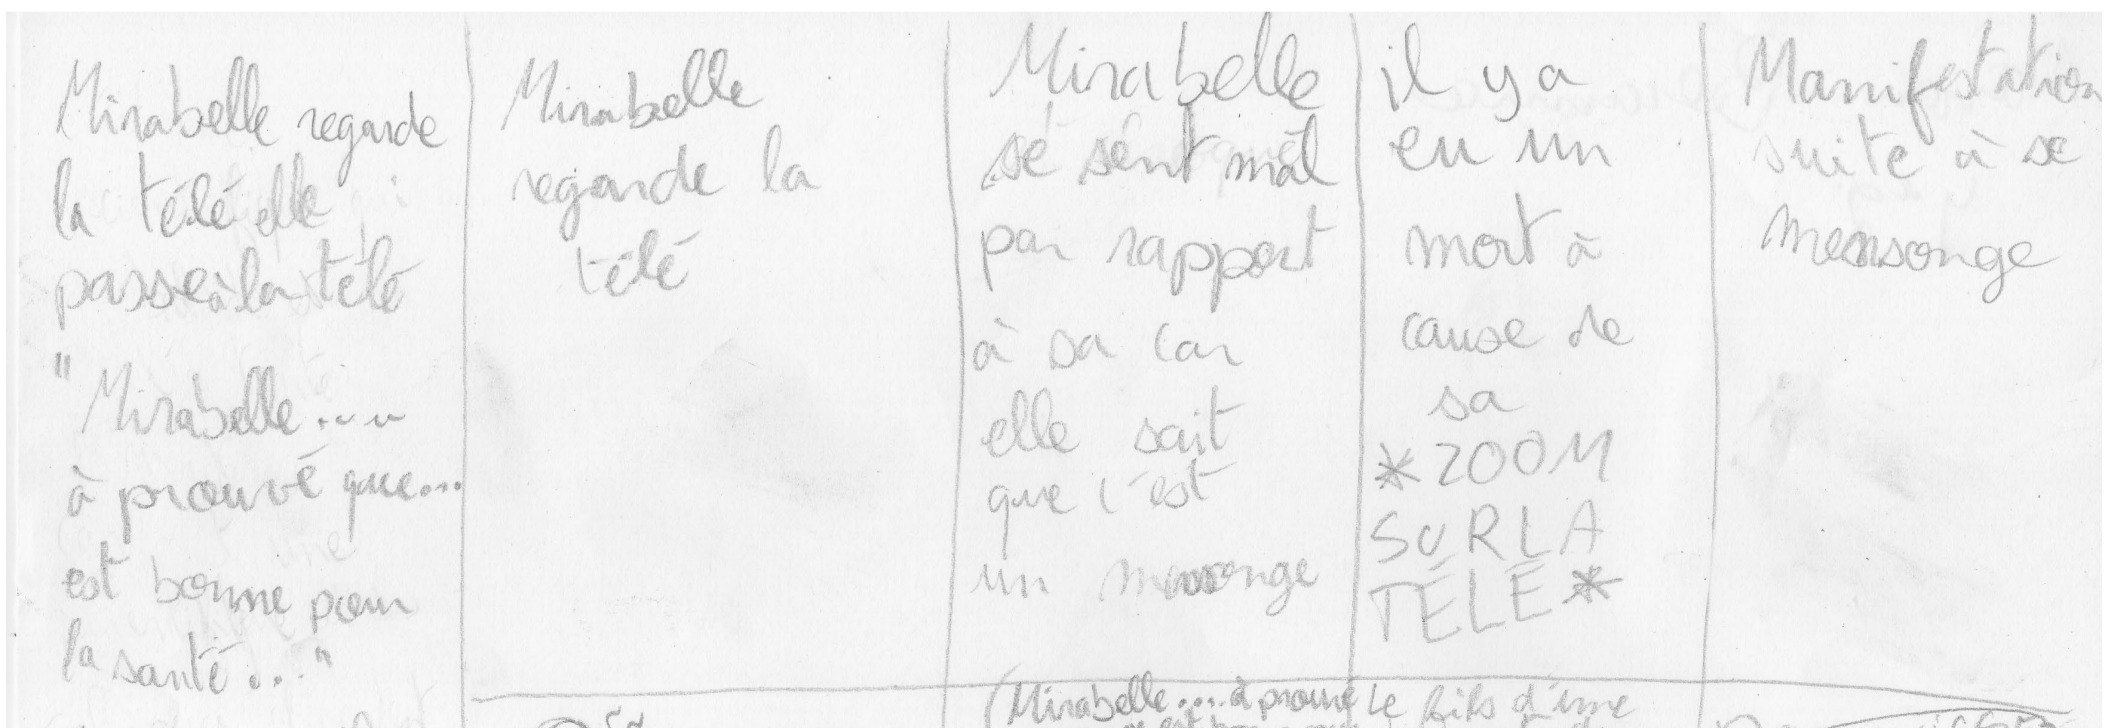 Mirabelle regarde
la télé elle
passe à la télé
"Mirabelle....
à prouvé que...
est bonne pour
la santé..."
Mirabelle
regarde la
télé
Mirabelle
se sent mal
par rapport
à sa car
elle sait
que c'est
un mensonge
il y a
eu un
mort à
cause de
sa
*ZOOM
SUR LA
TÉLÉ*
Manifestation
suite à se
mensonge
(Mirabelle.... à prouvé
Le fils d'une